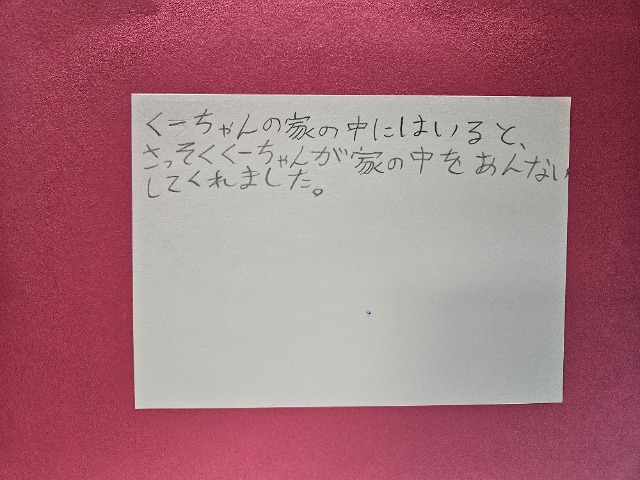 くーちゃんの家の中にはいると、
さっそくくーちゃんが家の中をあんない
してくれました。